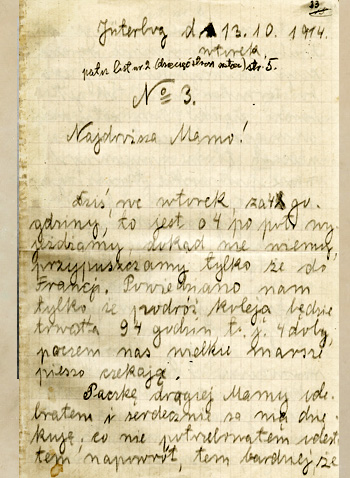 33
Jüterbog d. 13.10. 1914.
wtorek
patrz list nr. 2 str. 5.
No 3.
Najdroższa Mamo!
Dziś, we wtorek, za 4 go-
dziny, to jest o 4 po poł. wy-
jeżdżamy, dokąd nie wiemy,
przypuszczamy tylko że do
Francji. Powiedziano nam
tylko że podróż koleją będzie
trwała 94 godzin t. j. 4 doby,
poczem nas wielkie marsze
pieszo czekają.
Paczkę drogiej Mamy ode-
brałem i serdecznie za nią dzię-
kuję, co nie potrzebowałem odesła-
łem napowrót, tem bardziej, że